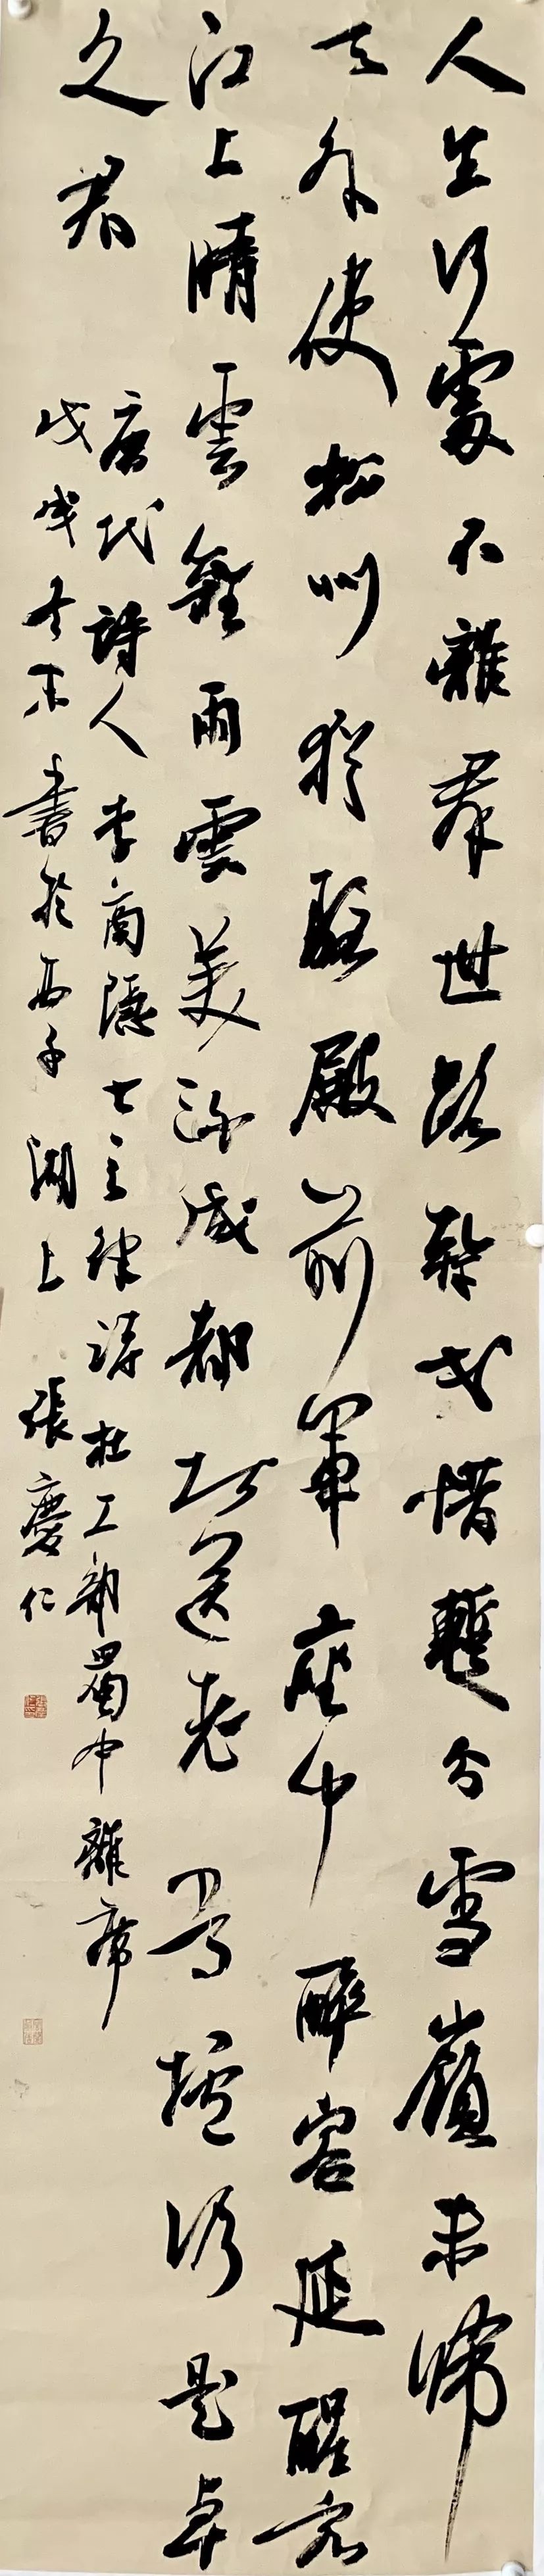 人生何處不離群世路幹戈惜暫分雪嶺未歸
天外使松州猶駐殿前軍座中醉客延醒客
江上晴雲雜雨雲美酒成都堪送老當壚仍是卓
文君
唐代詩人李商隱七言律詩杜工部蜀中離席
戊戌冬末書於西子湖上張慶仁